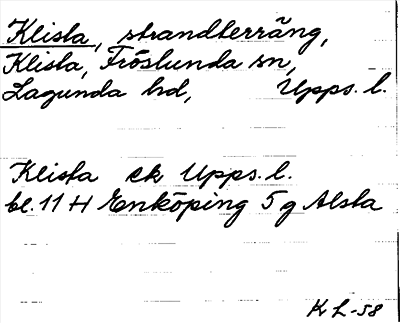 Klista, strandterräng,
Klista, Fröslunda sn,
Lagunda hd, Upps. l.
Klista ek Upps. l.
bl. 11 H Enköping 5 g Alsta
K L-58